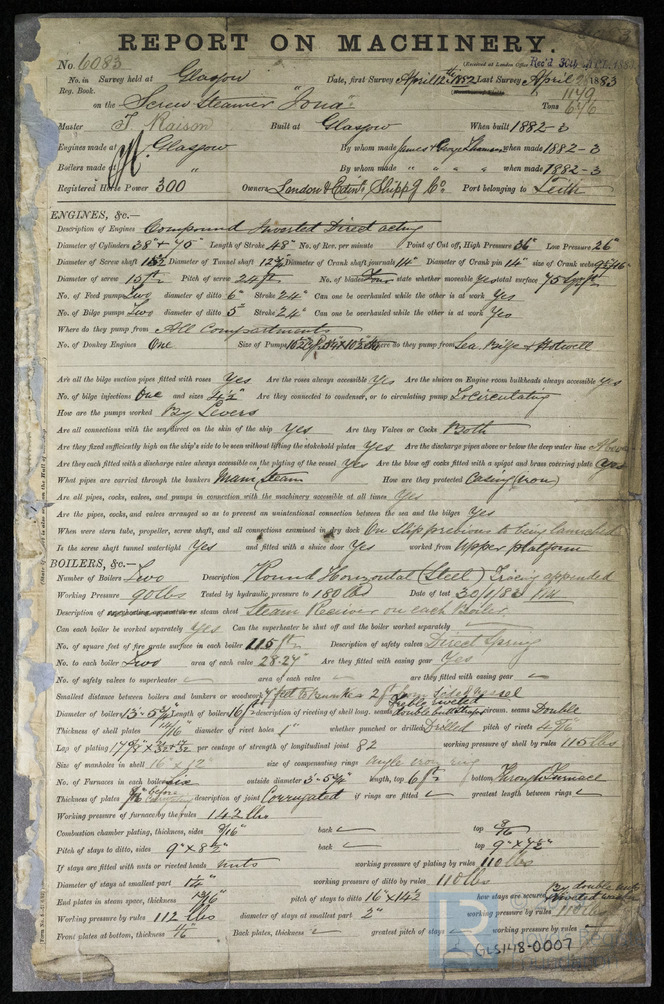 REPORT ON MACHINERY.
No. 6083 (Received at London Office Rec'd 30th 1883
No. in Survey held at Glasgow Date, first Survey April 12th 1882 Last Survey April 1883
Reg. Book.
on the Screw Steamer "Iona" Tons
Master T. Raison Built at Glasgow When built 1882-3
Engines made at Glasgow By whom made James & George Thomson when made 1882-3
Boilers made at " By whom made " " " " when made 1882-3
Registered Horse Power 300 Owners London & Edin. Shippg Co. Port belonging to Leith
ENGINES, &c.—
Description of Engines Compound Inverted Direct acting
Diameter of Cylinders 38" & 75" Length of Stroke 48" No. of Rev. per minute Point of Cut off, High Pressure 36" Low Pressure 26"
Diameter of Screw shaft Diameter of Tunnel shaft Diameter of Crank shaft journals 14" Diameter of Crank pin 14" size of Crank webs
Diameter of screw 15 ft Pitch of screw 24 ft No. of blades Four state whether moveable Yes total surface 75 sq ft
No. of Feed pumps Two diameter of ditto 6" Stroke 24" Can one be overhauled while the other is at work Yes
No. of Bilge pumps Two diameter of ditto 5" Stroke 24" Can one be overhauled while the other is at work Yes
Where do they pump from All Compartments
No. of Donkey Engines One Size of Pumps Where do they pump from Sea, Bilge & Hotwell
Are all the bilge suction pipes fitted with roses Yes Are the roses always accessible Yes Are the sluices on Engine room bulkheads always accessible Yes
No. of bilge injections One and sizes 4½" Are they connected to condenser, or to circulating pump To circulating
How are the pumps worked By Levers
Are all connections with the sea direct on the skin of the ship Yes Are they Valves or Cocks Both
Are they fixed sufficiently high on the ship's side to be seen without lifting the stokehold plates Yes Are the discharge pipes above or below the deep water line Above
Are they each fitted with a discharge valve always accessible on the plating of the vessel Yes Are the blow off cocks fitted with a spigot and brass covering plate Yes
What pipes are carried through the bunkers Main Steam How are they protected Casing (Iron)
Are all pipes, cocks, valves, and pumps in connection with the machinery accessible at all times Yes
Are the pipes, cocks, and valves arranged so as to prevent an unintentional connection between the sea and the bilges Yes
When were stern tube, propeller, screw shaft, and all connections examined in dry dock On Slip previous to being launched
Is the screw shaft tunnel watertight Yes and fitted with a sluice door Yes worked from Upper platform
BOILERS, &c.—
Number of Boilers Two Description Round Horizontal (Steel) Tracing appended
Working Pressure 90 lbs Tested by hydraulic pressure to 180 lbs Date of test 30/1/83
Description of steam chest Steam Receiver on each Boiler
Can each boiler be worked separately Yes Can the superheater be shut off and the boiler worked separately
No. of square feet of fire grate surface in each boiler 115 ft Description of safety valves Direct Spring
No. to each boiler Two area of each valve 28.27" Are they fitted with easing gear Yes
No. of safety valves to superheater area of each valve are they fitted with easing gear
Smallest distance between boilers and bunkers or woodwork 2 ft
Diameter of boilers Length of boilers 16 ft description of riveting of shell long. seams Treble riveted double butt straps circum. seams Double
Thickness of shell plates diameter of rivet holes 1" whether punched or drilled Drilled pitch of rivets
Lap of plating per centage of strength of longitudinal joint 82 working pressure of shell by rules 115 lbs
Size of manholes in shell 16" x 12" size of compensating rings angle iron ring
No. of Furnaces in each boiler Six outside diameter length, top 6 ft bottom Through Furnace
Thickness of plates description of joint Corrugated if rings are fitted greatest length between rings
Working pressure of furnace by the rules 142 lbs
Combustion chamber plating, thickness, sides 9/16" back top
Pitch of stays to ditto, sides 9" x 8½" back top
If stays are fitted with nuts or riveted heads nuts working pressure of plating by rules 110 lbs
Diameter of stays at smallest part working pressure of ditto by rules 110 lbs
End plates in steam space, thickness pitch of stays to ditto 16" x 14½ how stays are secured By double nuts
Working pressure by rules 112 lbs diameter of stays at smallest part 2" working pressure by rules 110 lbs
Front plates at bottom, thickness Back plates, thickness greatest pitch of stays working pressure by rules
GLS148-0007